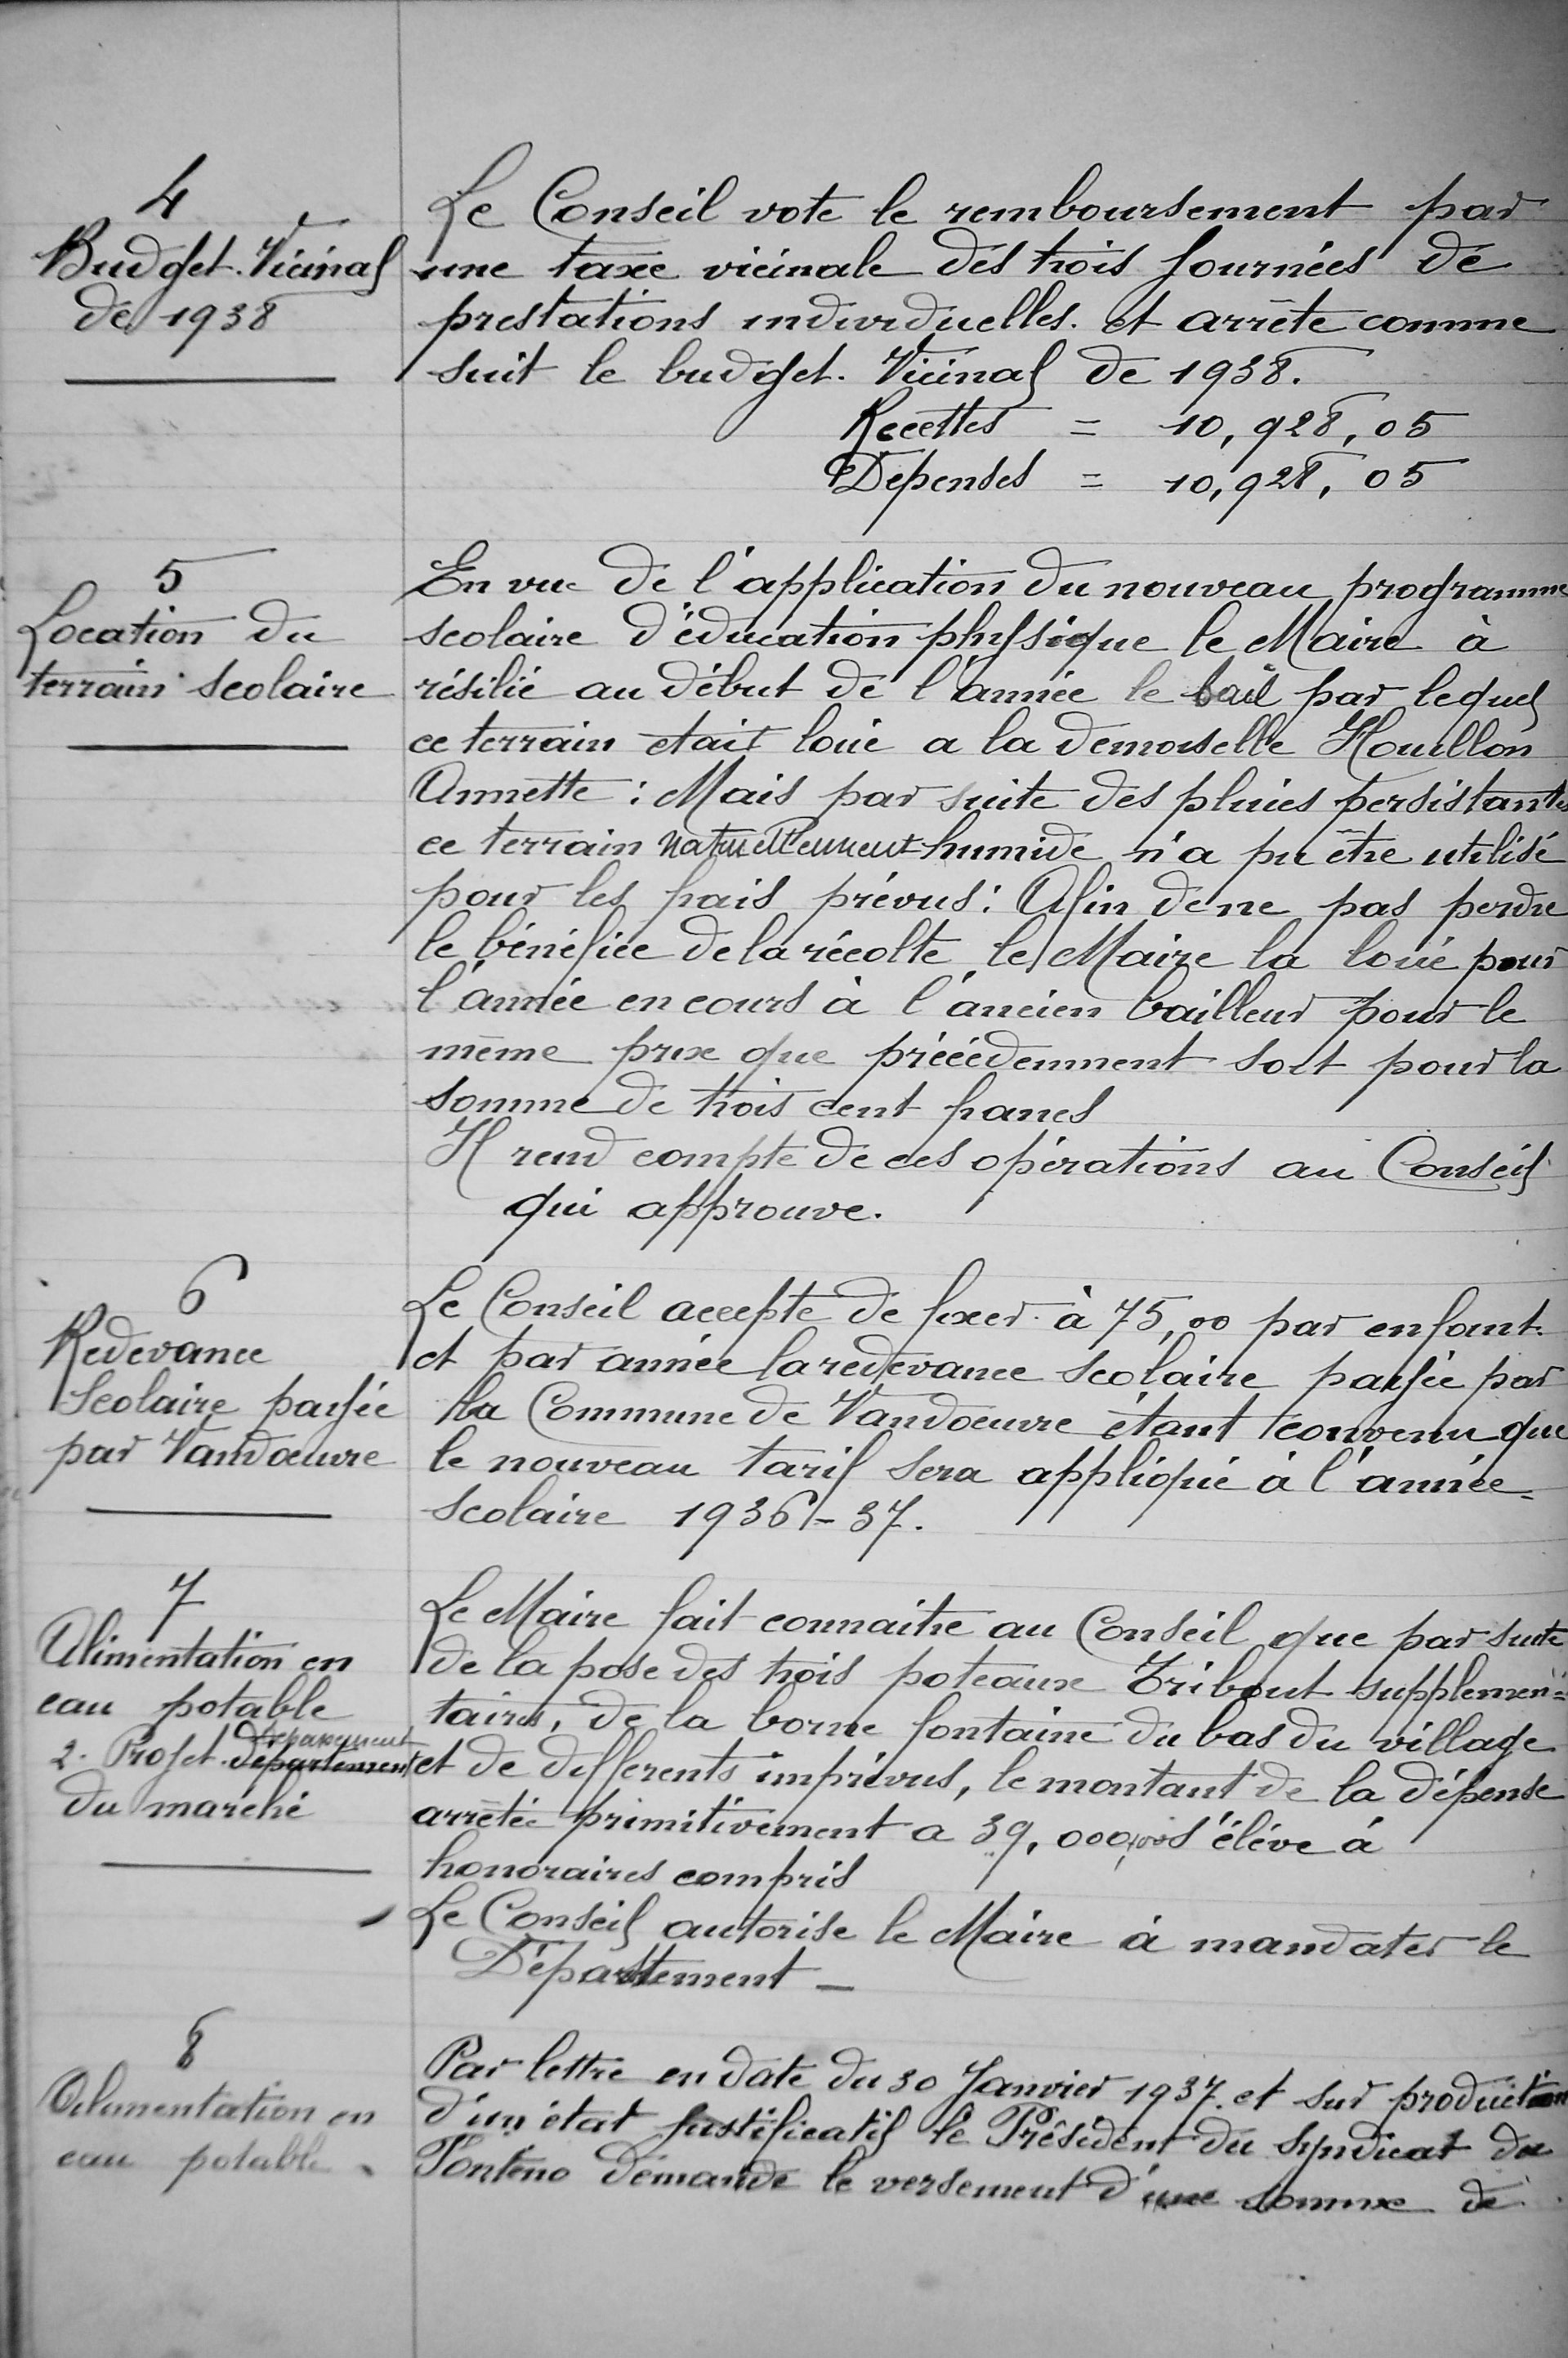 4
Budget Vicinal
de 1938
Le Conseil vote le remboursement par
une taxe vicinale des trois Journées de
prestations individuelles. et arrête comme
suit le budget. Vicinal de 1938.
Recettes = 10,928,05
Dépenses = 10,928,05
5
Location du
terrain scolaire
En vue de l'application du nouveau programme
scolaire d'éducation physique le Maire à
résilié au début de l'année le bail par lequel
ce terrain etait loué a la demoiselle Houillon
Annette : Mais par suite des pluies persistantes
ce terrain naturellement humide n'a pu être utilisé
pour les frais prévus : Afin de ne pas perdre
le bénéfice de la récolte le Maire la loué pour
l'année en cours à l'ancien bailleur pour le
même prix que précédemment soit pour la
somme de trois cent francs
Il rend compte de ces opérations au Conseil
qui approuve.
6
Redevance
Scolaire payée
par Vandoeuvre
Le Conseil accepte de fixer à 75,00 par enfant
et par année la redevance scolaire payée par
la Commune de Vandoeuvre étant convenu que
le nouveau tarif sera appliqué à l'année
scolaire 1936-37.
7
Alimentation en
eau potable
2. Projet département
du marché
Le Maire fait connaitre au Conseil que par suite
de la pose des trois poteaux Tribout supplemen=
taires, de la borne fontaine du bas du village
et de differents imprévus, le montant de la dépense
arrêtée primitivement a 39,000,00 s'éléve à
honoraires compris
Le Conseil autorise le Maire à mandater le
Département _
8
Alimentation en
eau potable
Par lettre en date du 30 Janvier 1937. et sur production
d'un état justificatif le Président du Syndicat du
demande le versement d'une somme de